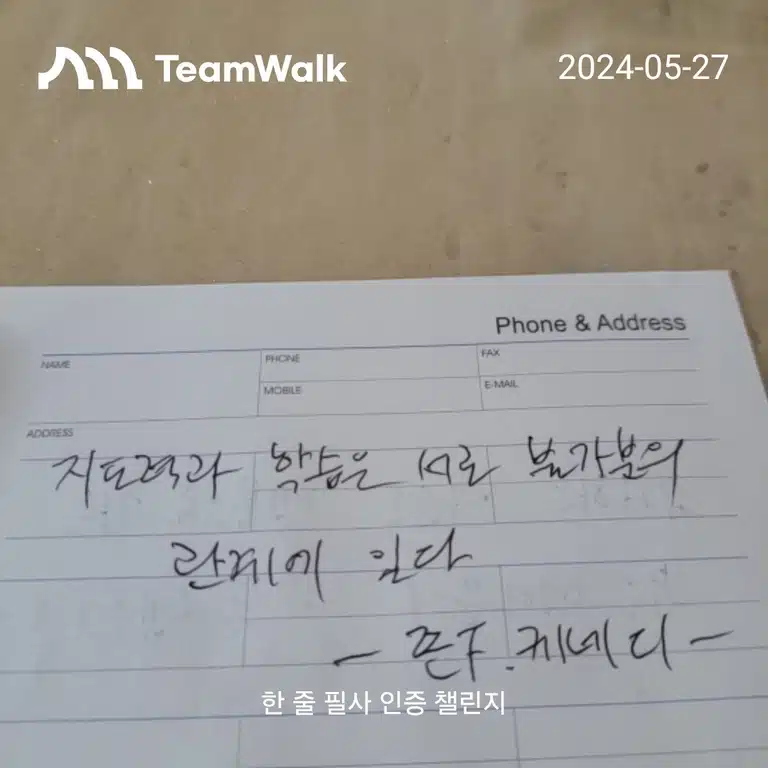 TeamWalk
2024-05-27
Phone & Address
NAME
PHONE
FAX
MOBILE
E-MAIL
ADDRESS
지도력과 학습은 서로 불가분의
관계에 있다
- 존F.케네디 -
한 줄 필사 인증 챌린지